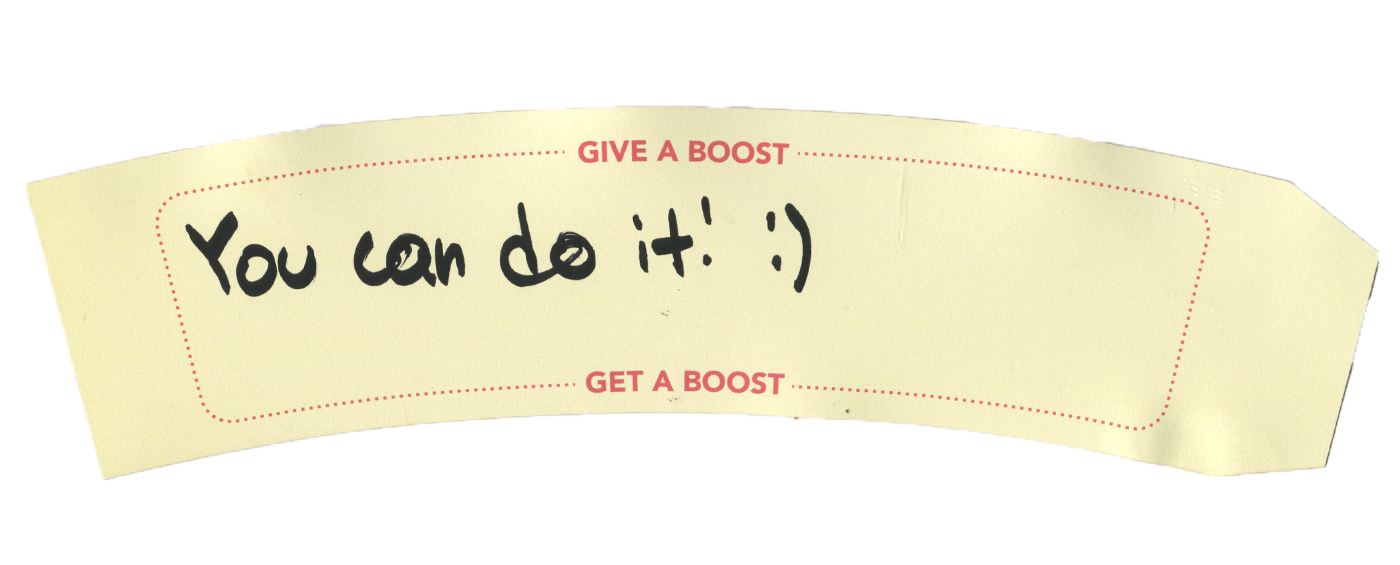 GIVE A BOOST
You can do it! :)
GET A BOOST